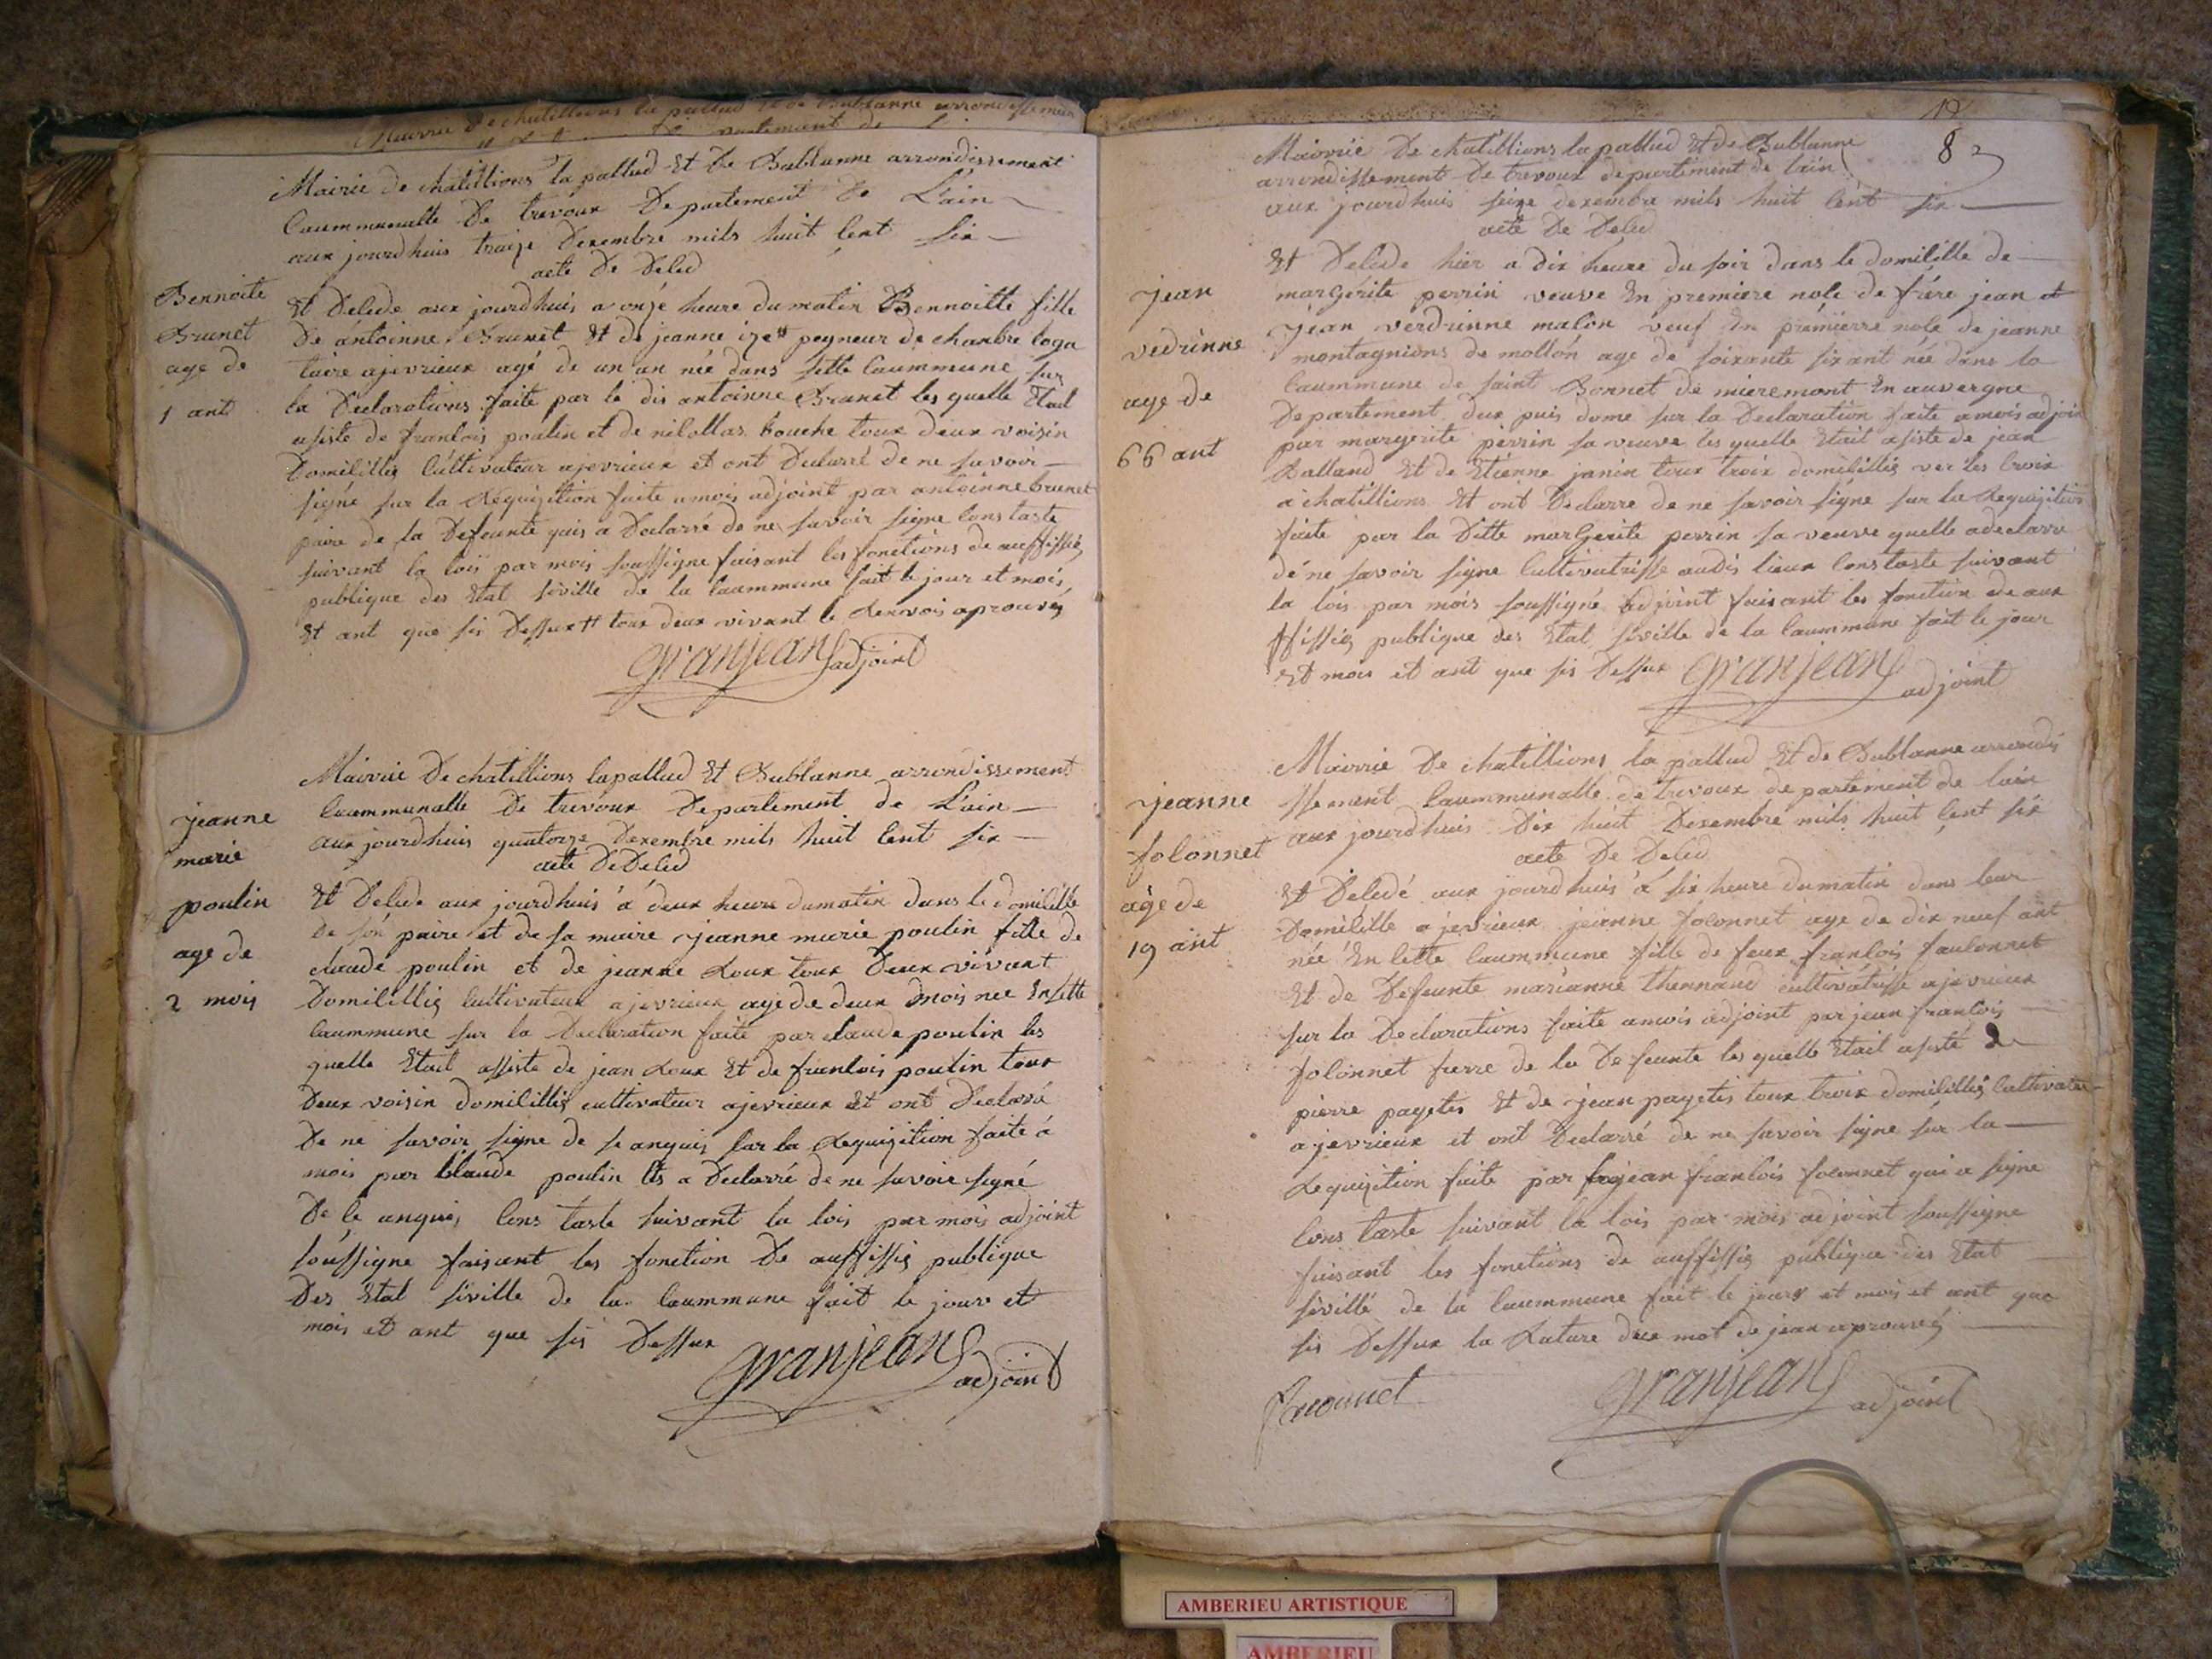 Mairie de chatillions la pallud Et de Bublanne arrondissement
Caummunalle De trevoux Departement de L'ain
aux jourdhuis traize Dexembre mils huit Cent six
acte De Deled
Bennoite
Brunet
age de
1 ant
Et Delede aux jourdhuis a onze heure du matin Bennoitte fille
De antoinne Brunet Et de jeanne ize# peyneur de chanbre loga
taire ajevrieux agé de un an née dans sette Caummune sur
la Declarations faite par le dis antoinne Brunet les quelle Etait
asiste de franlois poulin et de nilollas bouche toux deux voisin
Domilillis Cultivateur ajevrieux et ont Declarré de ne savoir
signé sur la Requizition faite amois adjoint par antoinne brunet
paire de la Defeunte quis a Declarré de ne savoir signe Cons taste
suivant la lois par mois soussigne faisant les fonctions de auffissié
publique des Etat siville de la Caummune fait le jour et mois
Et ant que sis Dessux # toux deux vivant le Renvois aprouvés
Granjean adjoint
Mairrie De chatillions lapallud Et Bublanne arrondissement
Caummunalle De trevoux Departement de L'ain
aux jourdhuis quatorze Dexembre mils huit Cent six
acte De Deled
jeanne
marie
poulin
age de
2 mois
Et Delede aux jourdhuis a deux heure dumatin dans le domilille
De son paire et de sa maire jeanne marie poulin fille de
claude poulin et de jeanne Roux toux Deux vivant
Domilillis Cultivateur ajevrieux age de deux mois nee En sette
Caummune sur la Declaration faite par claude poulin les
quelle Etait assiste de jean Roux Et de franlois poulin toux
Deux voisin domilillis cultivateur ajevrieux Et ont Declaré
De ne savoir signe de se anquis sur la Requizition faite a
mois par Claude poulin lis a Declarré de ne savoir signé
De le anquis Cons taste suivant la lois par mois adjoint
soussigne faisant les fonction De auffissis publique
Des Etat siville de la Caummune fait le jour et
mois et ant que sis Dessux
Granjean adjoint
19
8
Mairrie De chatillions la pallud Et de Bublanne
arrondissement De trevoux departement de lain
aux jourdhuis seize dexembre mils huit Cent six
acte De Deled
jean
vedrinne
age de
66 ant
Et Delede hier a dix heure du soir dans le domilille de
margerite perrin veuve En premiere nole de frére jean et
jean verdrinne malon veuf En premierre nole de jeanne
montagnions de mollon age de soixante six ant née dans la
Caummune de saint Bonnet de mieremont En auvergne
Departement dux puis dome sur la Declaration faite amois adjoin
par margerite perrin sa veuve les quelle Etait asiste de jean
Balland Et de Etienne janin toux troix domilillis ver les Croix
a chatillions Et ont Declarre de ne savoir signe sur la Requizition
faite par la Ditte margerite perrin sa veuve quelle adeclarre
de ne savoir signe Cultivatrisse audis lieux Cons taste suivant
la lois par mois soussigné adjoint faisant les fonction de aux
ffissis publique des Etat siville de la Caummune fait le jour
Et mois et ant que sis Dessux
Granjean adjoint
Mairrie De chatillions la pallud Et de Bublanne arrondis
ssement Caummunalle de trevoux departement de lain
aux jourdhuis Dix huit Dexembre mils huit Cent six
acte De Deled
jeanne
folonnet
age de
19 ant
Et Deledé aux jourdhuis a six heure dumatin dans leur
Domilille a jevrieux jeanne folonnet age de dix neuf ant
née En lette Caummune fille de feux franlois faulonnet
Et de Defeunte marianne thennand cultivatrisse ajevrieux
sur la Declarations faite amois adjoint par jean franlois
folonnet frerre de la Defeunte les quelle Etait asisté de
pierre pagetis Et de jean pagetis toux troix domilillis Cultivateu
ajevrieux et ont Declarré de ne savoir signé sur la
Requizition faite par jean franlois folonnet qui a signe
Cons taste suivant la lois par mois adjoint soussigne
faisant les fonctions de auffissis publique des Etat
sivillé de la Caummune fait le jour et mois et ant que
sis Dessux la Rature dux mot de jean aprouvés
Granjean adjoint
AMBERIEU ARTISTIQUE
AMBERIEU